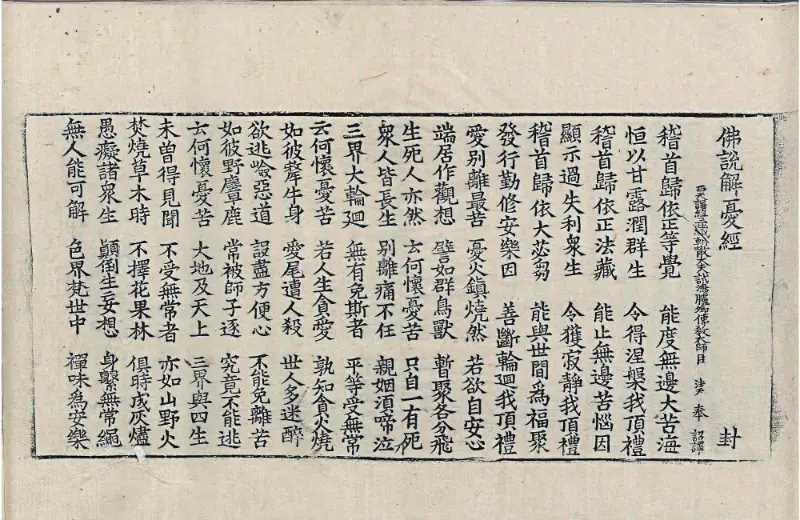 佛說解憂經 封
西天譯經三藏朝散大夫試鴻臚卿傳教大師臣 法天 奉 詔譯
稽首歸依正等覺 能度無邊大苦海
恒以甘露潤群生 令得涅槃我頂禮
稽首歸依正法藏 能止無邊苦惱因
顯示過失利衆生 令獲寂靜我頂禮
稽首歸依大苾芻 能與世間爲福聚
發行勤修安樂因 善斷輪迴我頂禮
愛別離最苦 憂火鎮燒然 若欲自安心
端居作觀想 譬如群鳥獸 暫聚各分飛
生死人亦然 云何懷憂苦 只自一有死
衆人皆長生 別離痛不任 親姻須啼泣
三界大輪廻 無有免斯者 平等受無常
云何懷憂苦 若人生貪愛 孰知貪火燒
如彼犛牛身 愛尾遭人殺 世人多迷醉
欲逃嶮惡道 設盡方便心 不能免離苦
如彼野麞鹿 常被師子逐 究竟不能逃
云何懷憂苦 大地及天上 三界與四生
未曾得見聞 不受無常者 亦如山野火
焚燒草木時 不擇花果林 俱時成灰燼
愚癡諸衆生 顛倒生妄想 身繫無常繩
無人能可解 色界梵世中 禪味為安樂